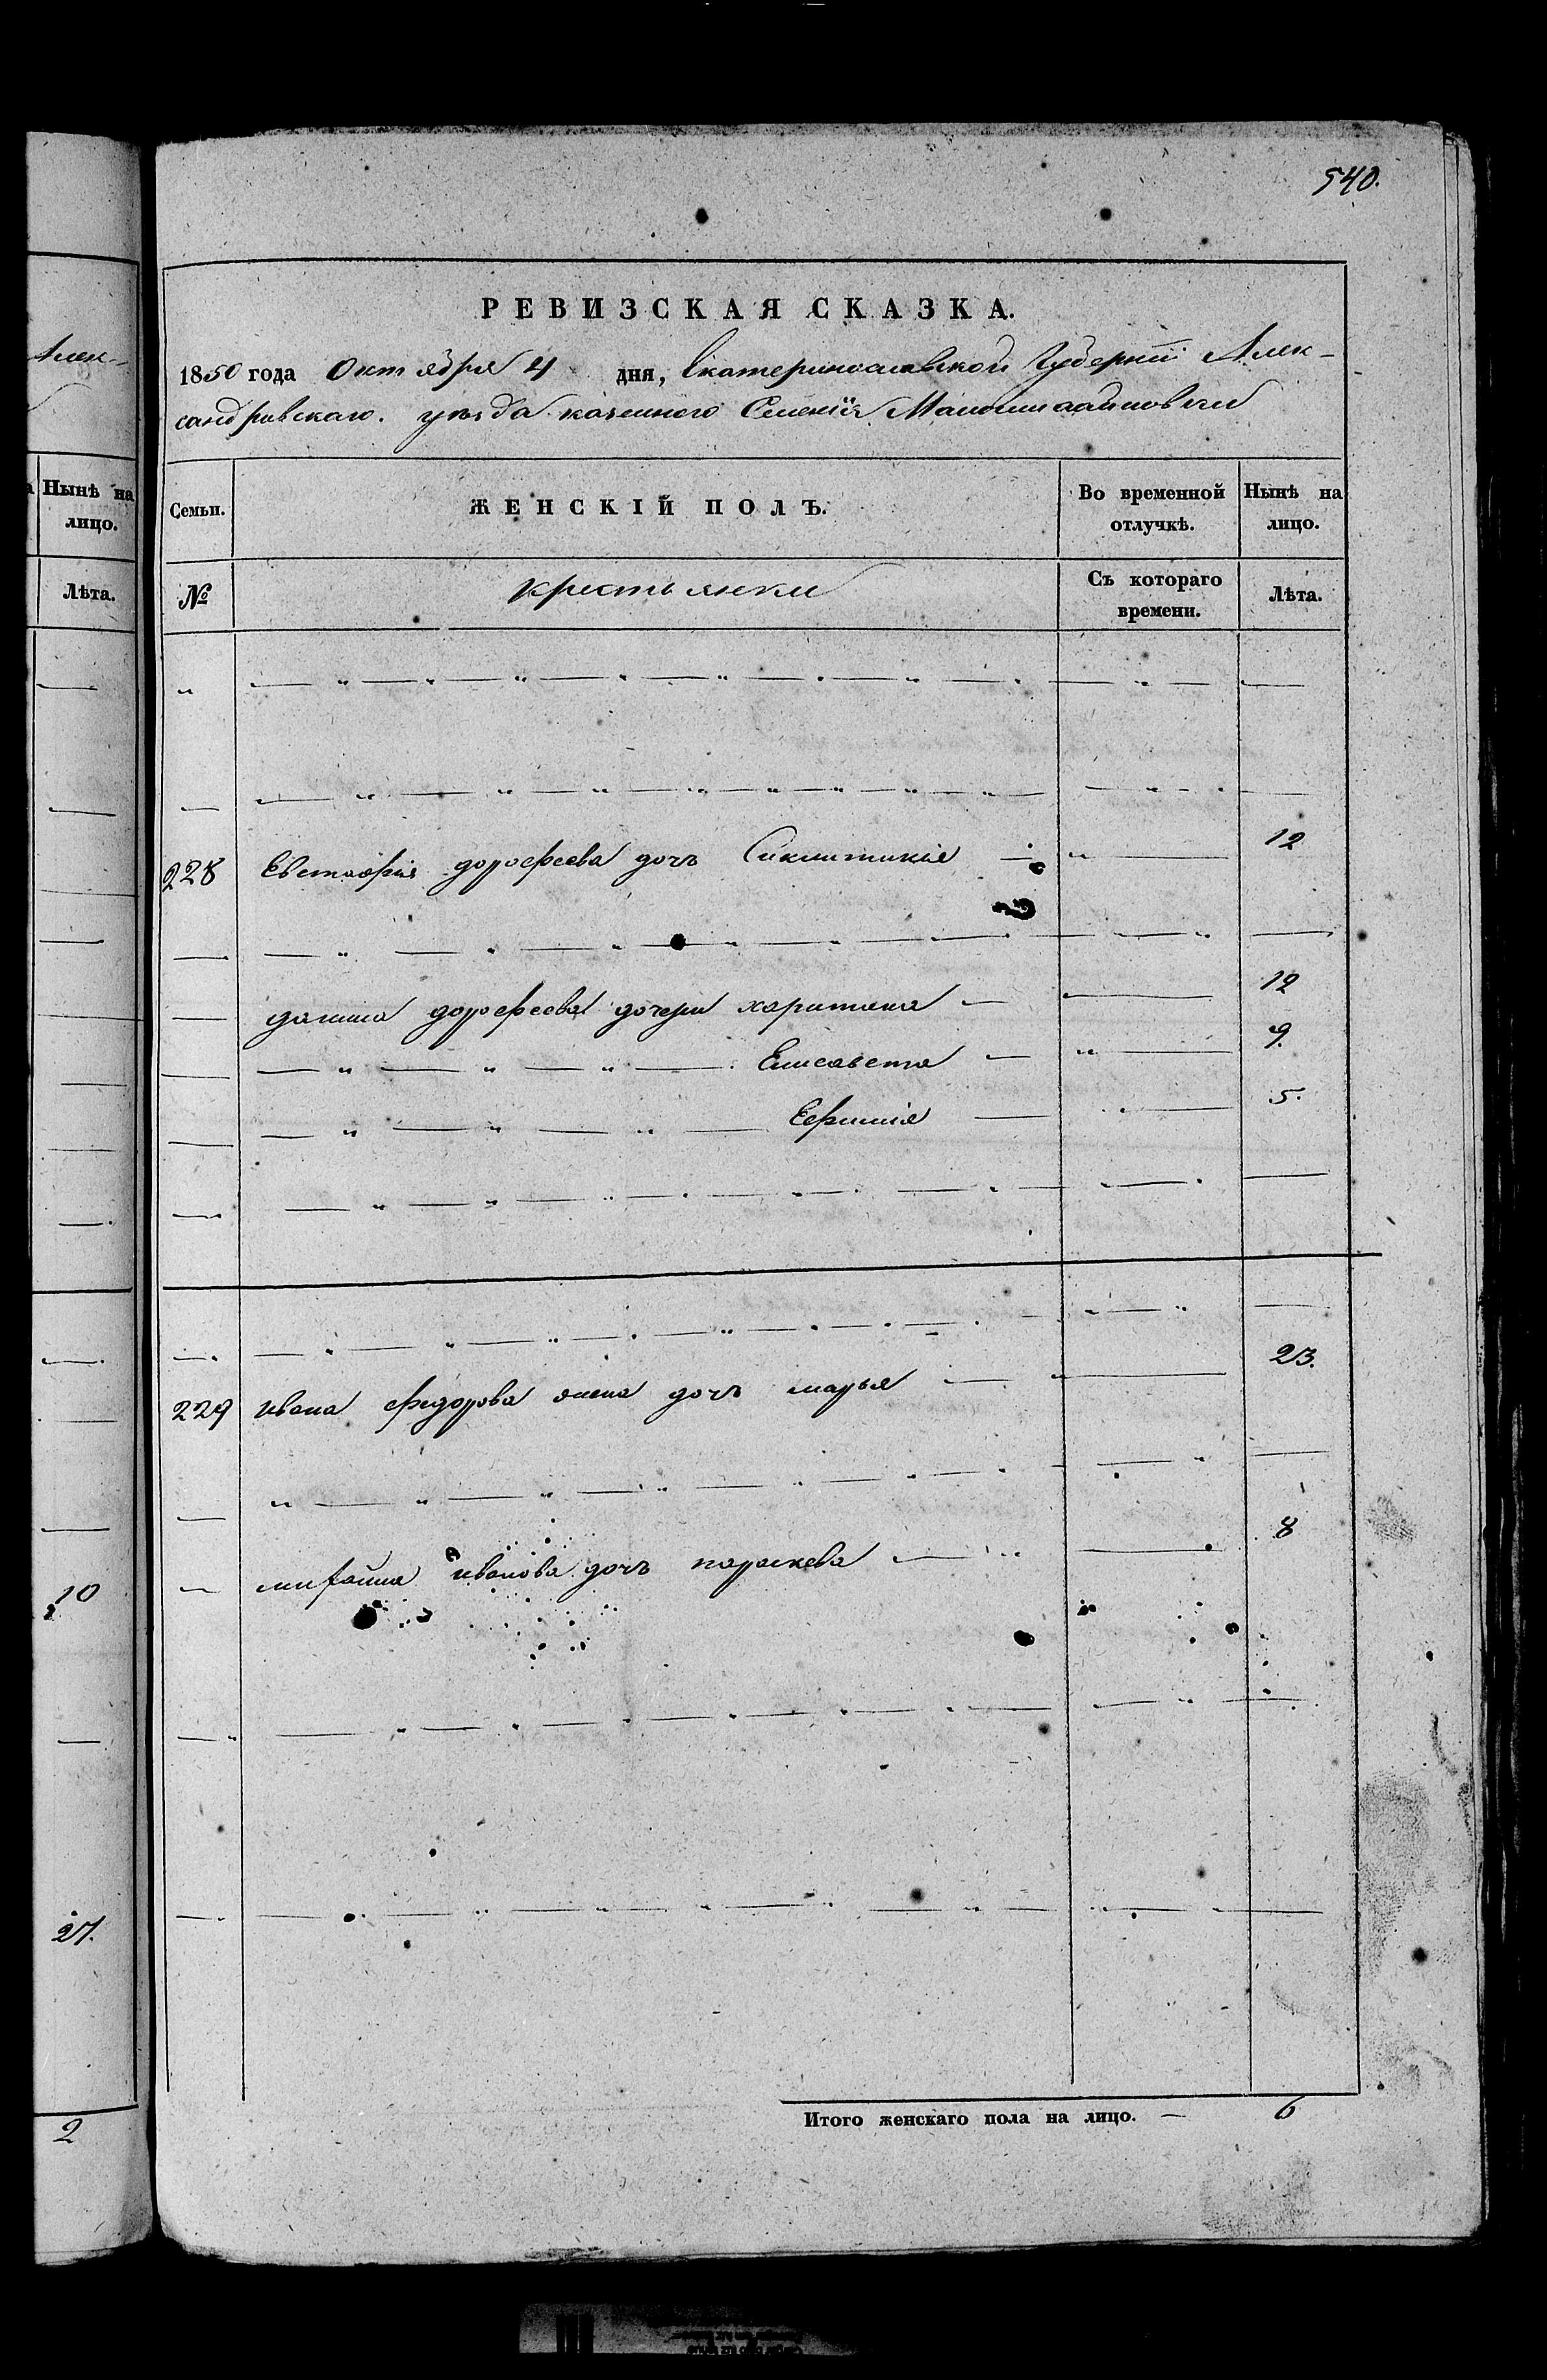 540.
Алек-
РЕВИЗСКАЯ СКАЗКА.
1850 года Октября 4 дня, Екатеринославской Губернии Алек-
сандровскаго уѣзда казенного Селенія
Нынѣ на лицо.
Семьи.
ЖЕНСКІЙ ПОЛЪ.
Во временной отлучкѣ.
Нынѣ на лицо.
Лѣта.
№
крестьянки
Съ котораго времени.
Лѣта.
228 Евстафія дорофеева дочь Синклитикія 12
данила дорофеева дочери харитина 12
Елисавета 9.
Ефимія 5.
229 ивана федорова жена дочь марья 23.
митайла иванова дочь параскева 8
10
27.
2
Итого женскаго пола на лицо. — 6